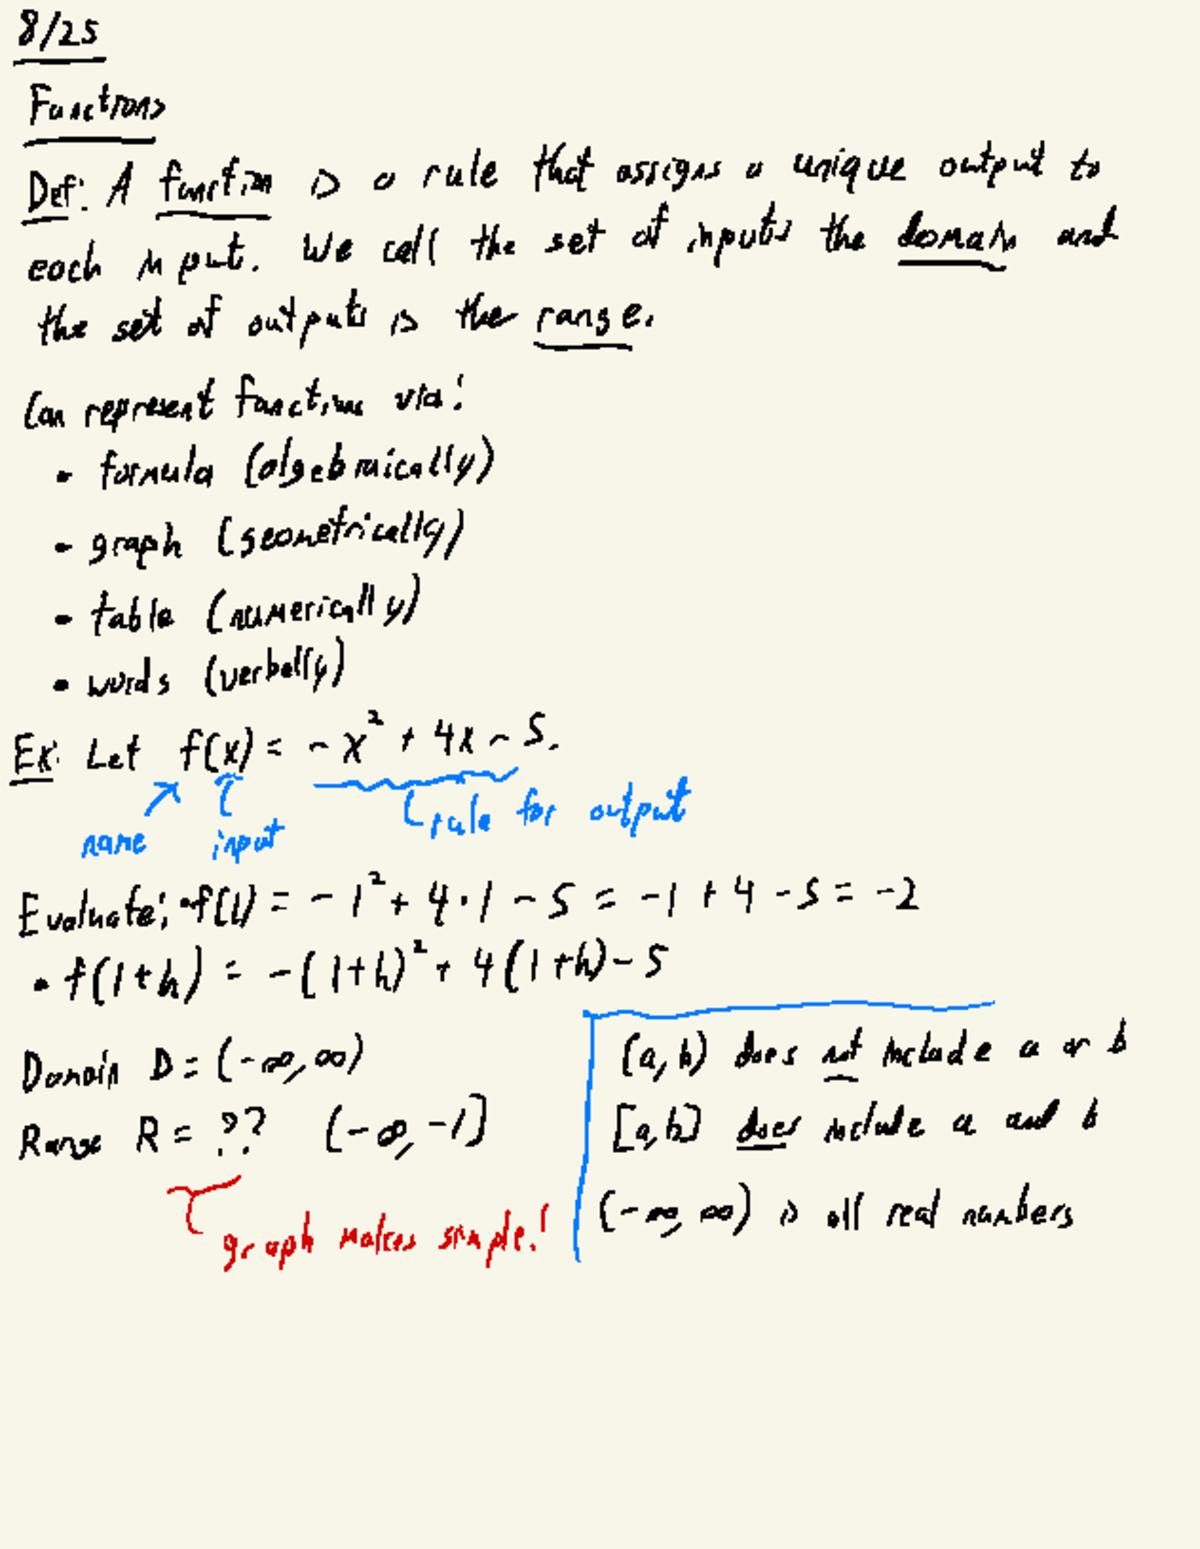 8/25
Functions
Def: A function is a rule that assigns a unique output to
each input. We call the set of inputs the domain and
the set of outputs is the range.
Can represent functions via:
• formula (algebraically)
• graph (geometrically)
• table (numerically)
• words (verbally)
Ex: Let f(x) = -x² + 4x - 5.
name input rule for output
Evaluate: • f(1) = -1² + 4·1 - 5 = -1 + 4 - 5 = -2
• f(1+h) = -(1+h)² + 4(1+h) - 5
Domain D = (-∞, ∞)
Range R = ?? (-∞, -1]
graph makes simple!
(a, b) does not include a or b
[a, b] does include a and b
(-∞, ∞) is all real numbers